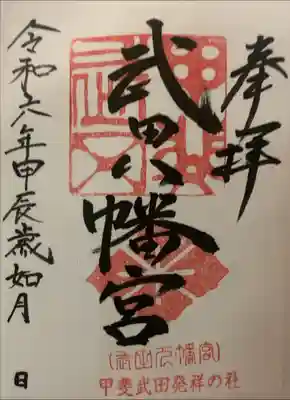 奉拝
武田八幡宮
(武田八幡宮)
甲斐武田発祥の社
令和六年甲辰歳如月 日